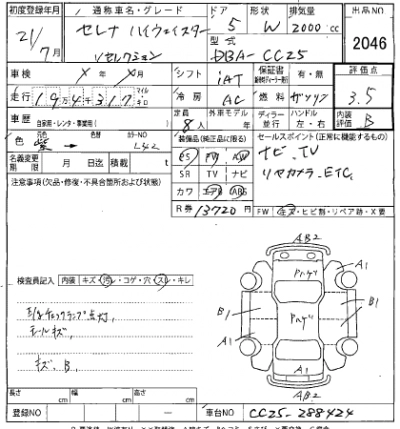 初度登録年月 通称車名・グレード ドア 形状 排気量 出品NO
21/7月 セレナ ハイウェイスター 5 W 2000cc 2046
Vセレクション 型式 DBA-CC25
車検 × 年 × 月 シフト iAT 保証書 有・無 評価点
走行 19万4千317 マイル キロ 冷房 AC 燃料 ガソリン 3.5
車歴 自家用・レンタ・事業用 定員 8人 外車モデル 年 ディーラー 並行 ハンドル 左・右 内装評価 B
色 紫→ 色替 カラーNO L42 装備品(純正品に限る) セールスポイント(正常に機能するもの)
名義変更期限 月 日迄 積載 t PS PW AW ナビ、TV
注意事項(欠品・修復・不具合箇所および状態) SR TV ナビ リヤカメラ、ETC、
カワ エアB ABS
R券 13720円 FW 点・キズ・ヒビ割・リペア跡・X要
AB2
検査員記入 内装 キズ・汚レ・コゲ・穴・スレ・キレ
A1
B1
B1
A1
A1
AB2
エンジンチェックランプ点灯、
シールキズ、
キズ、B、
長さ cm 幅 cm 高さ cm
登録NO 車台NO CC25-288424